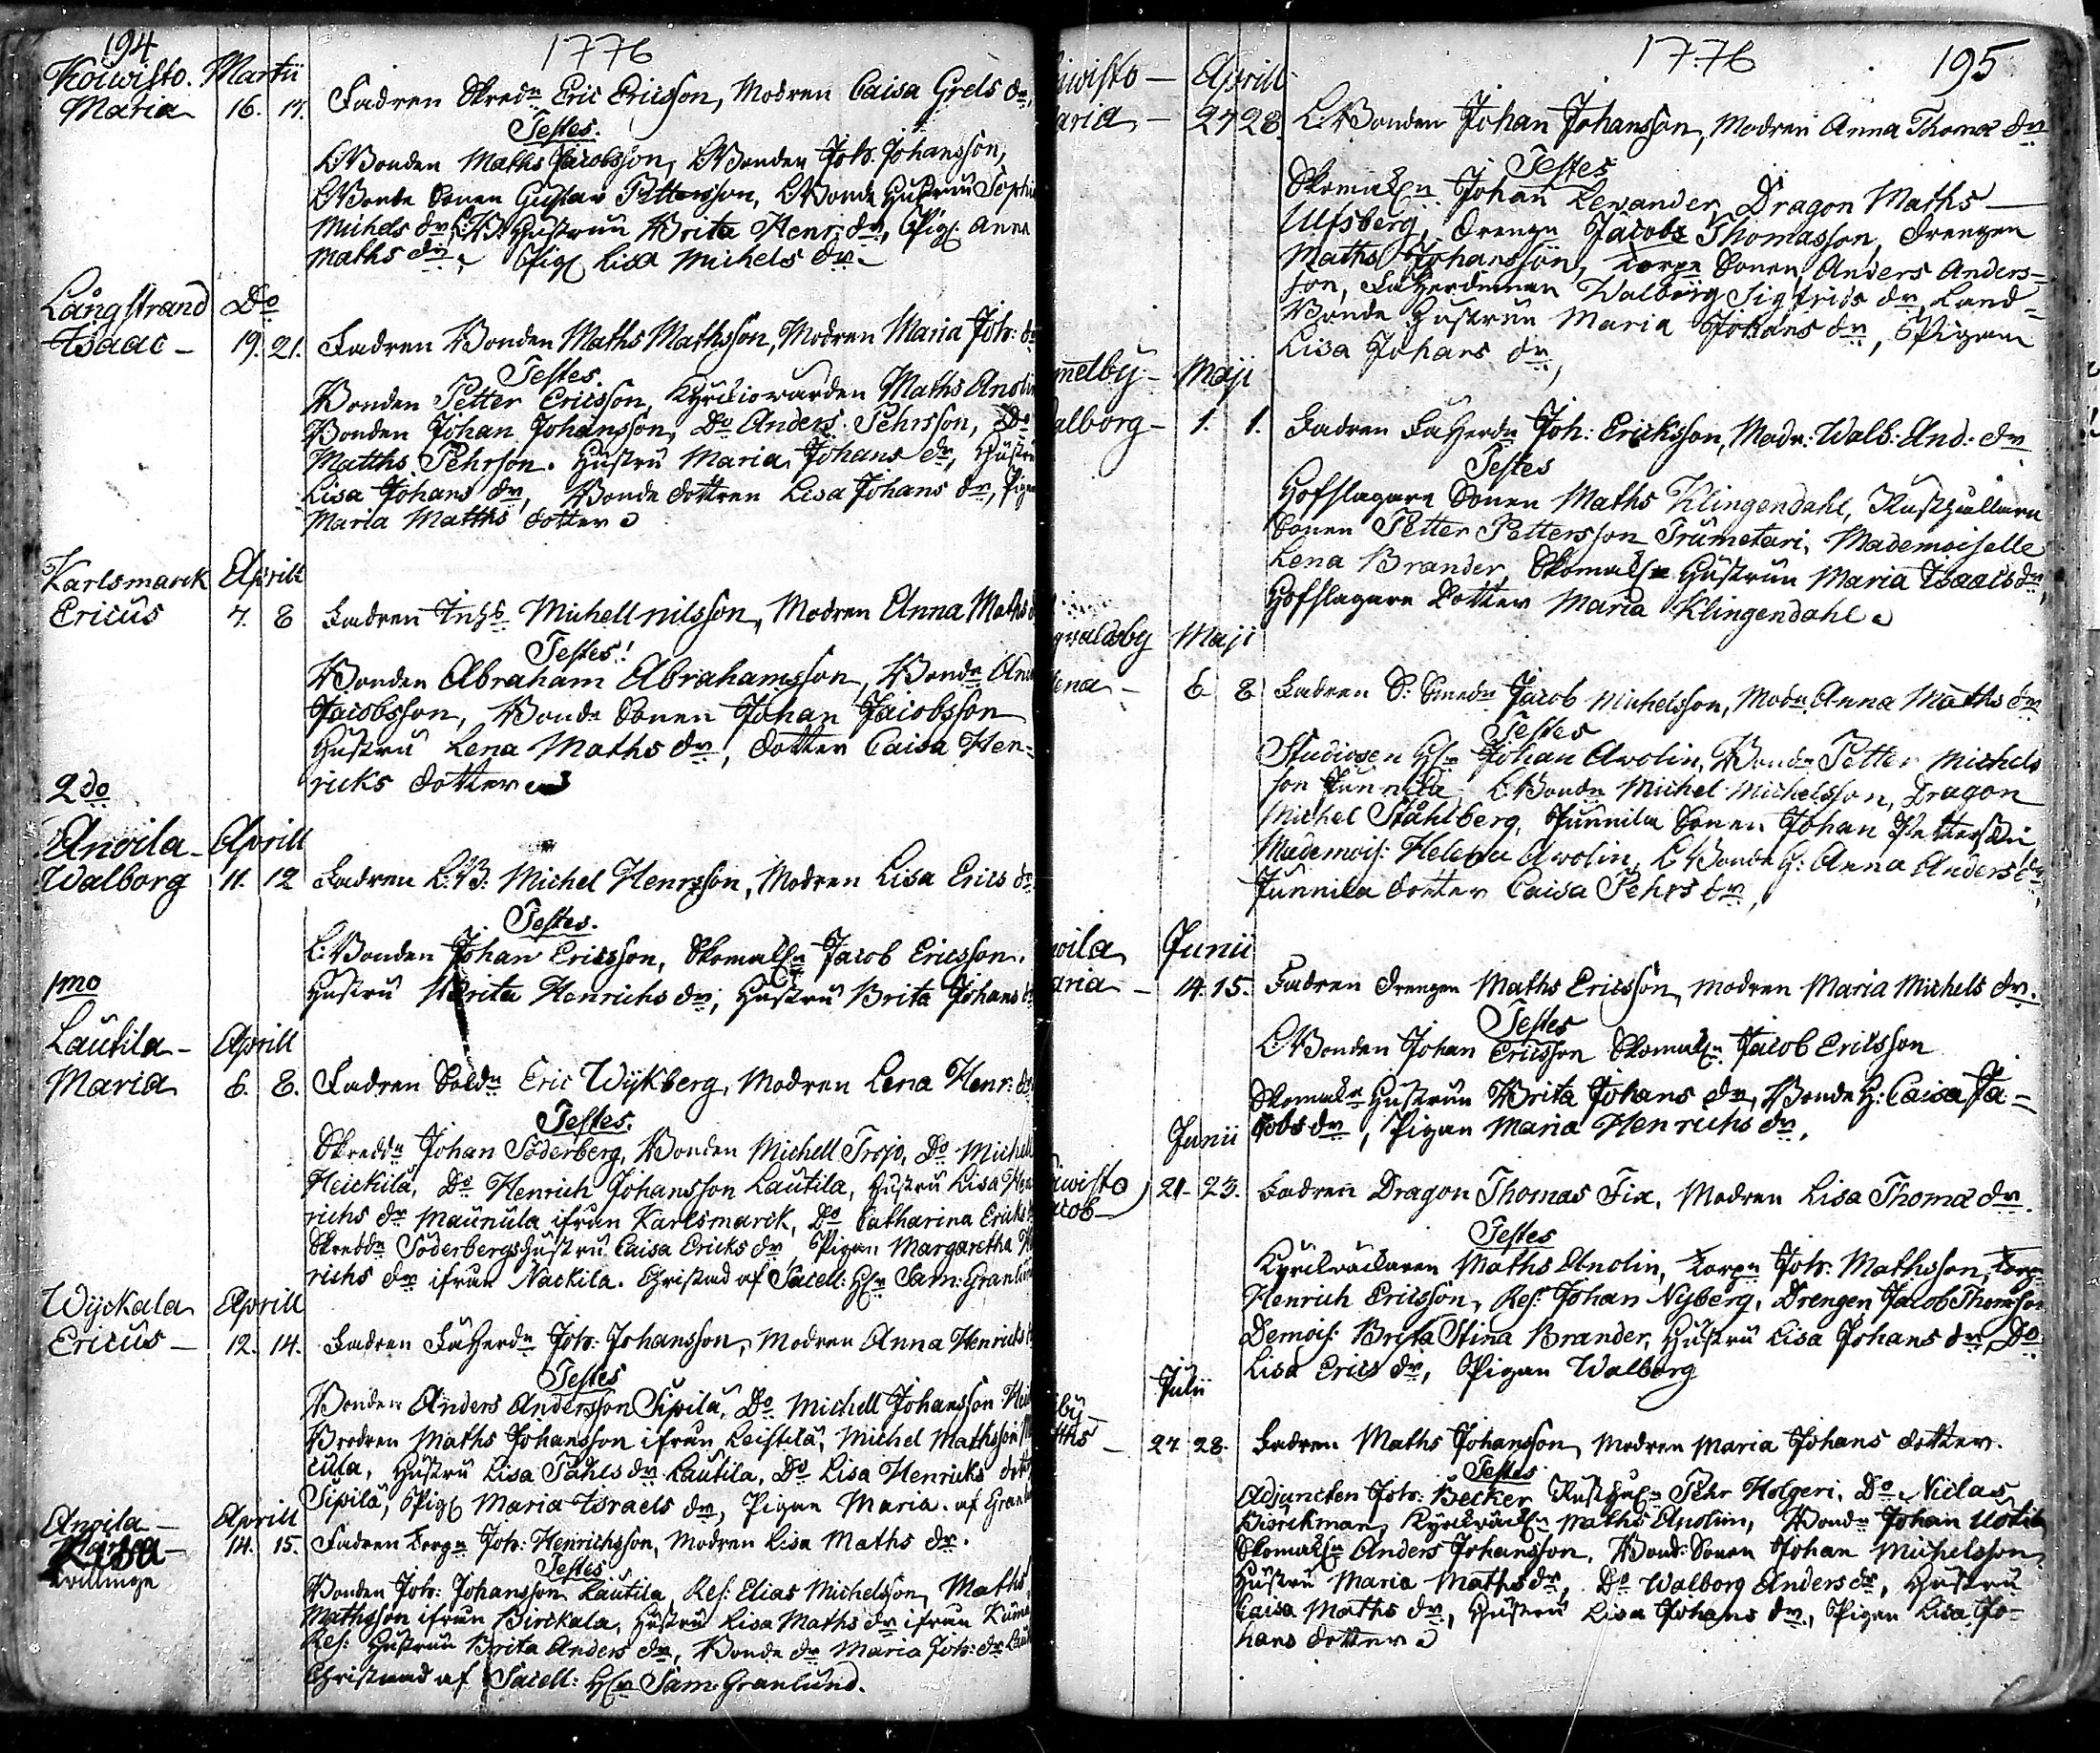 194
1776
Koiwisto. Martii
Maria 16. 17. Fadren Skredn Eric Ericsson, Modren Caisa Grels dr,
Testes.
L:Bonden Maths Jacobsson, L:Bonden Joh: Johansson,
L:Bonde Sonen Gustav Pettersson, L:Bonde Hustrun Sophia
Michels dr, L:B: Hustrun Brita Henr: dr, Pig: Anna
Maths dr, Pig: Lisa Michels dr.
Långstrand Do
Isaac - 19. 21. Fadren Bonden Maths Mathsson, Modren Maria Joh: dr
Testes.
Bonden Petter Ericsson, Kyrkiowärden Maths Anolin
Bonden Johan Johansson, Do Anders Pehrsson, Do
Matths Pehrson. Hustru Maria Johans dr, Hustru
Lisa Johans dr, Bonde dottren Lisa Johans dr, Pigan
Maria Matths dotter
Karlsmarck Aprill
Ericus 7. 8 Fadren Inhs Michell nilsson, Modren Anna Maths
Testes!
Bonden Abraham Abrahamsson, Bondn And
Jacobsson, Bonde Sonen Johan Jacobsson
Hustru Lena Maths dr, dotter Caisa Hen-
ricks dotter
2do
Anoila - Aprill
Walborg 11. 12 Fadren L:B: Michel Henrsson, Modren Lisa Erics dr
Testes.
L:Bonden Johan Ericsson, Skomakn Jacob Ericsson.
Hustru Brita Henrichs dr, Hustru Brita Johans dr
1mo
Lautila - Aprill
Maria 6. 8. Fadren Soldn Eric Wijkberg, Modren Lena Henr: dr
Testes.
Skreddn Johan Söderberg, Bonden Michell Trojo, Do Michell
Heickilä, Do Henrich Johansson Lautila, Hustru Lisa Hen
richs dr Maunula ifrån Karlsmarck, Do Catharina Ericks
Skreddn Söderbergs Hustru Caisa Ericks dr, Pigan Margaretha H
richs dr ifrån Nackila. Christnad af Sacell: Hr Sam: Granlund
Wijckala Aprill
Ericus - 12. 14. Fadren Fäherdn Joh: Johansson, Modren Anna Henricks
Testes
Bonden Anders Andersson Sipilä, Do Michell Johansson Hei
Brodren Maths Johansson ifrån Leistilä, Michel Mathsson
cula, Hustru Lisa Påhls dr Lautila, Do Lisa Henricks dott
Sipilä, Pig: Maria Israels dr, Pigan Maria. af Granlund
Anoila - Aprill
Lisa - 14. 15. Fadren Torpn Joh: Henrichsson, Modren Lisa Maths dr.
tvillinge
Testes
Bonden Joh: Johansson Lautila, Res: Elias Michelsson, Maths
Mathsson ifrån Birckala, Hustru Lisa Maths dr ifrån Kuma
Res: Hustrun Brita Anders dr, Bonde dr Maria Joh: dr Laut
Christnad af Sacell: Hr Sam: Granlund.
1776
195
iwisto - Aprill
aria - 27 28. L:Bonden Johan Johansson, Modren Anna Thomæ dr
Testes
Skomakn Johan Lewander, Dragon Maths
Ulfsberg, drengn Jacob Thomasson, drengen
Maths Johansson, Torpn Sonen Anders Anders-
son, Fäherdinnan Walborg Sigfrids dr, Land-
Bonde Hustrun Maria Johans dr, Pigan
Lisa Johans dr,
melby - Maji
alborg - 1. 1. Fadren Fäherdn Joh: Ericksson, Modr: Walb: And: dr
Testes
Hofslagare Sonen Maths Klingendahl, Rusthållare
Sonen Petter Pettersson Trumetari, Mademoiselle
Lena Brander, Skomakn Hustrun Maria Isaacs dr,
Hofslagare Dotter Maria Klingendahl
gwaldsby Maji
ena - 6 8 Fadren S: Smedn Jacob Michelsson, Modn Anna Maths dr
Testes
Studiosen Hr Johan Awolin, Bondn Petter Michels
son Junnila, L:Bondn Michel Michelsson, Dragon
Michel Ståhlberg, Junnila Sonen Johan Pettersson
Mademois: Helena Awolin, L:Bonde H: Anna Anders dr,
Junnila dotter Caisa Pehrs dr,
noila Junii
aria - 14. 15. Fadren drengen Maths Ericsson, Modren Maria Michels dr.
Testes
L:Bonden Johan Ericsson Skomakn Jacob Ericsson
Skomakn Hustrun Brita Johans dr, Bonde H: Caisa Ja-
cobs dr, Pigan Maria Henrichs dr.
Junii
iwisto 21. 23. Fadren Dragon Thomas Fix, Modren Lisa Thomæ dr.
acob
Testes
Kyrckväckaren Maths Anolin, Torpn Joh: Mathsson, Torpn
Henrich Ericsson, Res: Johan Nyberg, Drengen Jacob Thomsson
Demois: Brita Stina Brander, Hustru Lisa Johans dr, Do
Lisa Erics dr, Pigan Walborg
Julii
by -
ths - 27 28. Fadren Maths Johansson, Modren Maria Johans dotter.
Testes
Adjuncten Joh: Becker, Rusthåln Pehr Holgeri, Do Niclas
Biörckman, Kyrckväckn Maths Anolin, Bondn Johan Uotila
Skomakn Anders Johansson, Bond: Sonen Johan Michelsson,
Hustru Maria Maths dr, Do Walborg Anders dr, Hustru
Caisa Maths dr, Hustru Lisa Johans dr, Pigan Lisa Jo-
hans dotter